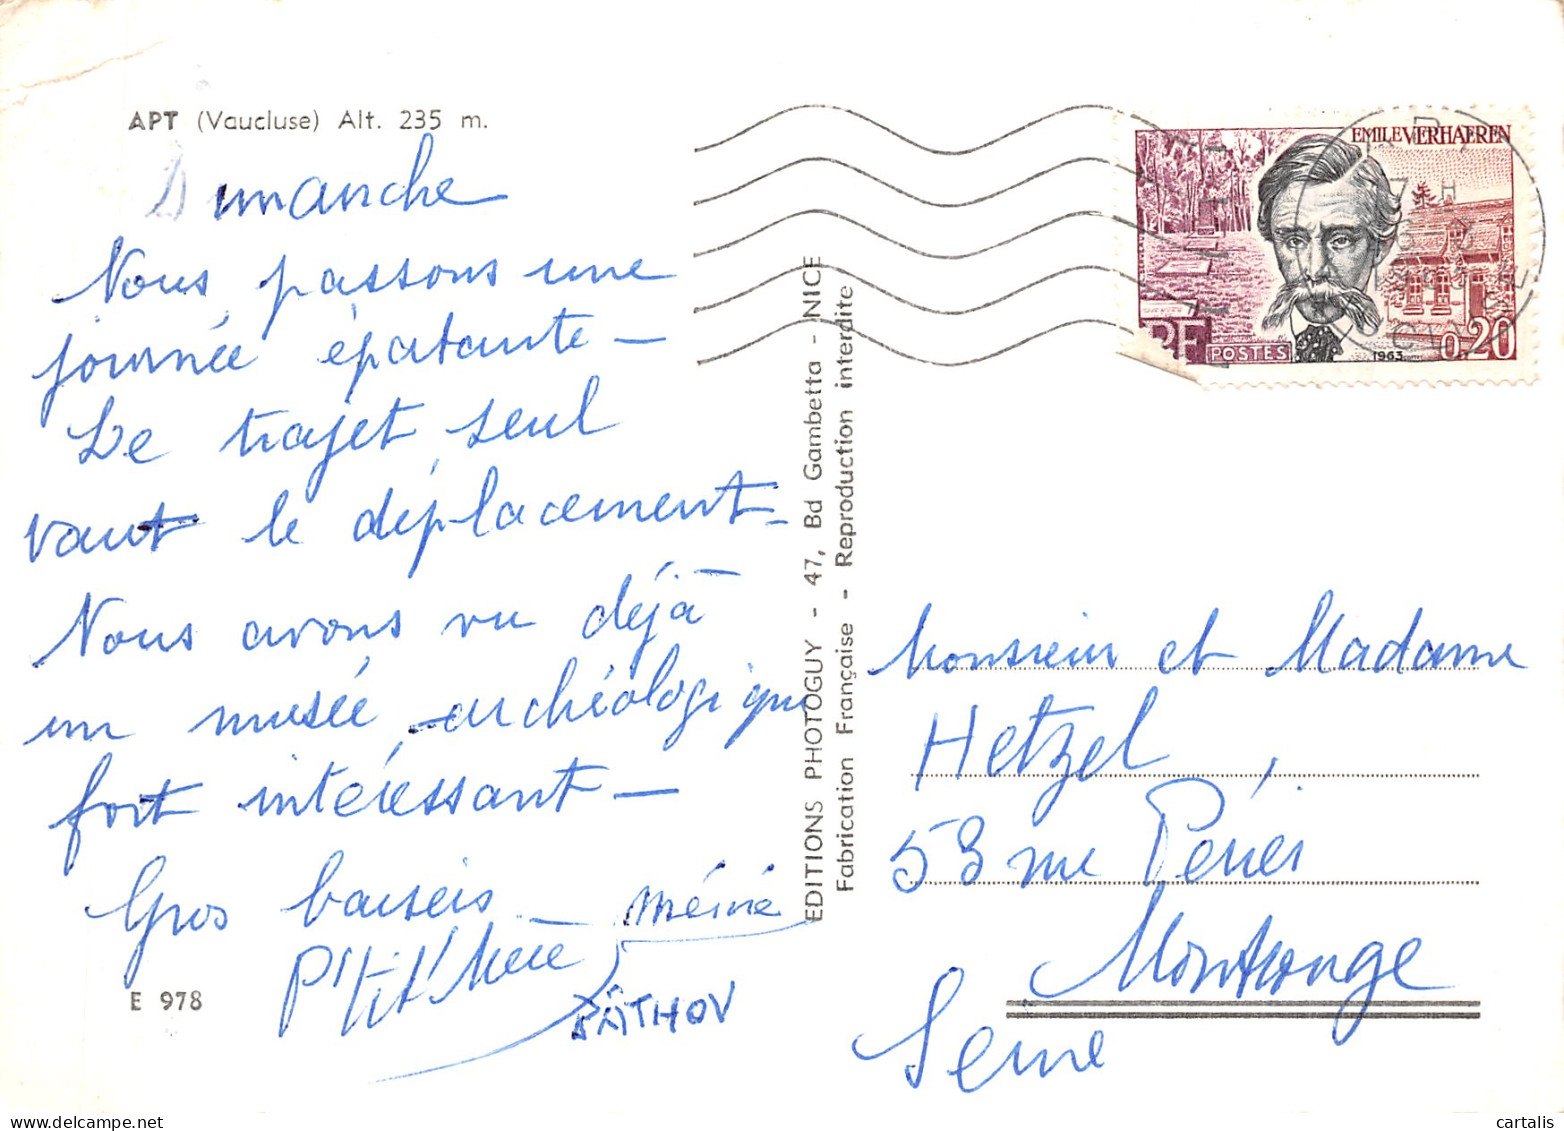 APT (Vaucluse) Alt. 235 m.
Dimanche
Nous passons une
journée épatante —
Le trajet seul
vaut le déplacement —
Nous avons vu déjà
un musée archéologique
fort intéressant —
Gros baisers — Mémé
P'tit' Mère
PÂTHOV
E 978
EDITIONS PHOTOGUY - 47, Bd Gambetta - NICE
Fabrication Française - Reproduction interdite
EMILE VERHAEREN
RF POSTES 1963 0,20
Monsieur et Madame
Hetzel,
53 rue Périer
Montrouge
Seine
cartalis